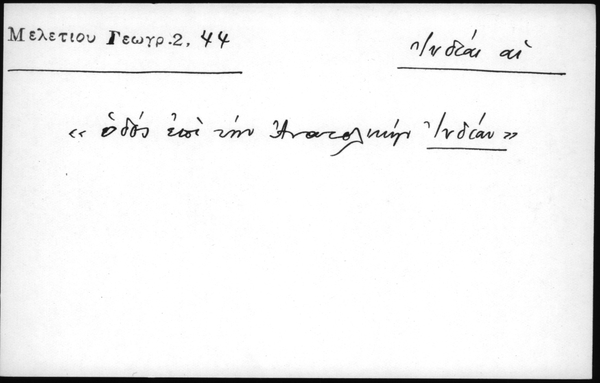 Μελετιου Γεωγρ.2, 44
Ἰνδίαι αἱ
« ὁδός ἐπί τήν Ἀνατολικήν Ἰνδίαν »